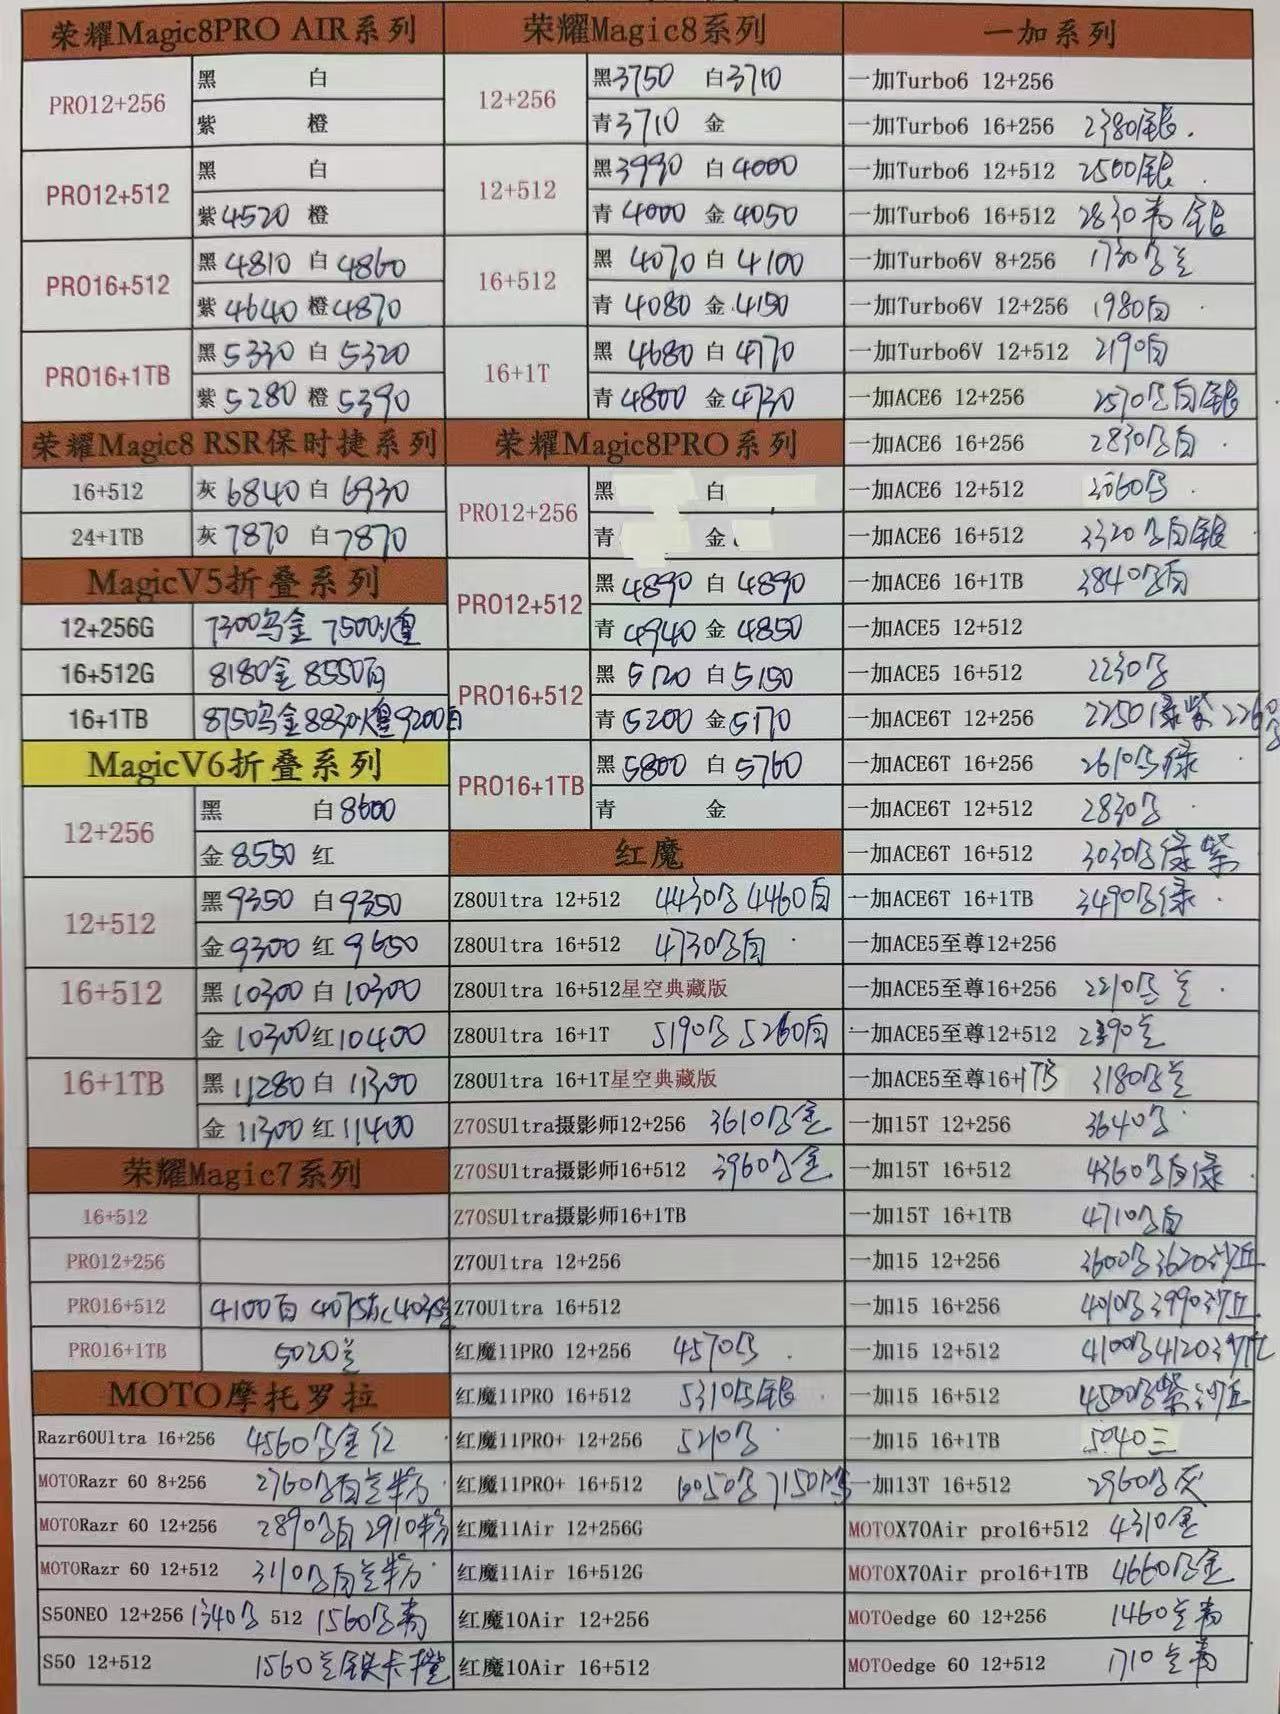 荣耀Magic8PRO AIR系列
PRO12+256 黑 白
紫 橙
PRO12+512 黑 白
紫4520 橙
PRO16+512 黑4810 白4860
紫4640 橙4870
PRO16+1TB 黑5330 白5320
紫5280 橙5390
荣耀Magic8 RSR保时捷系列
16+512 灰6840 白6930
24+1TB 灰7870 白7870
MagicV5折叠系列
12+256G 7300乌金 7500
16+512G 8180金 8550白
16+1TB 8750乌金8830 9200白
MagicV6折叠系列
12+256 黑 白8600
金8550 红
12+512 黑9350 白9350
金9300 红9650
16+512 黑10300 白10300
金10300 红10400
16+1TB 黑11280 白11300
金11300 红11400
荣耀Magic7系列
16+512
PRO12+256
PRO16+512 4100白 4075灰
PRO16+1TB 5020兰
MOTO摩托罗拉
Razr60Ultra 16+256 4560 金红
MOTORazr 60 8+256 2760 白兰粉
MOTORazr 60 12+256 2890 白2910粉
MOTORazr 60 12+512 3110 白兰粉
S50NEO 12+256 1340 512 1560 青
S50 12+512 1560兰 橙
荣耀Magic8系列
12+256 黑3750 白3710
青3710 金
12+512 黑3990 白4000
青4000 金4050
16+512 黑4070 白4100
青4080 金4150
16+1T 黑4680 白4770
青4800 金4730
荣耀Magic8PRO系列
PRO12+256 黑 白
青 金
PRO12+512 黑4890 白4890
青4940 金4850
PRO16+512 黑5120 白5150
青5200 金5170
PRO16+1TB 黑5800 白5760
青 金
红魔
Z80Ultra 12+512 4430 4460白
Z80Ultra 16+512 4730 白
Z80Ultra 16+512星空典藏版
Z80Ultra 16+1T 5190 5260白
Z80Ultra 16+1T星空典藏版
Z70SUltra摄影师12+256 3610 金
Z70SUltra摄影师16+512 3960 金
Z70SUltra摄影师16+1TB
Z70Ultra 12+256
Z70Ultra 16+512
红魔11PRO 12+256 4570
红魔11PRO 16+512 5310 银
红魔11PRO+ 12+256 5210
红魔11PRO+ 16+512 6050 7150
红魔11Air 12+256G
红魔11Air 16+512G
红魔10Air 12+256
红魔10Air 16+512
一加系列
一加Turbo6 12+256
一加Turbo6 16+256 2380银
一加Turbo6 12+512 2500银
一加Turbo6 16+512 2830青 银
一加Turbo6V 8+256 1730 兰
一加Turbo6V 12+256 1980白
一加Turbo6V 12+512 2190白
一加ACE6 12+256 2570 白银
一加ACE6 16+256 2830 白
一加ACE6 12+512 3060
一加ACE6 16+512 3320 白银
一加ACE6 16+1TB 3840 白
一加ACE5 12+512
一加ACE5 16+512 2230
一加ACE6T 12+256 2250绿紫 2260
一加ACE6T 16+256 2610 绿
一加ACE6T 12+512 2830
一加ACE6T 16+512 3030 绿紫
一加ACE6T 16+1TB 3490 绿
一加ACE5至尊12+256
一加ACE5至尊16+256 2210 兰
一加ACE5至尊12+512 兰
一加ACE5至尊16+1TB 3180 兰
一加15T 12+256 3640
一加15T 16+512 4360 白绿
一加15T 16+1TB 4710 白
一加15 12+256 3600 3620沙丘
一加15 16+256 4010 3990沙丘
一加15 12+512 4100 4120沙丘
一加15 16+512 4500 紫沙丘
一加15 16+1TB 5040三
一加13T 16+512 2960 灰
MOTOX70Air pro16+512 4310金
MOTOX70Air pro16+1TB 4660 金
MOTOedge 60 12+256 1460兰青
MOTOedge 60 12+512 1710兰青